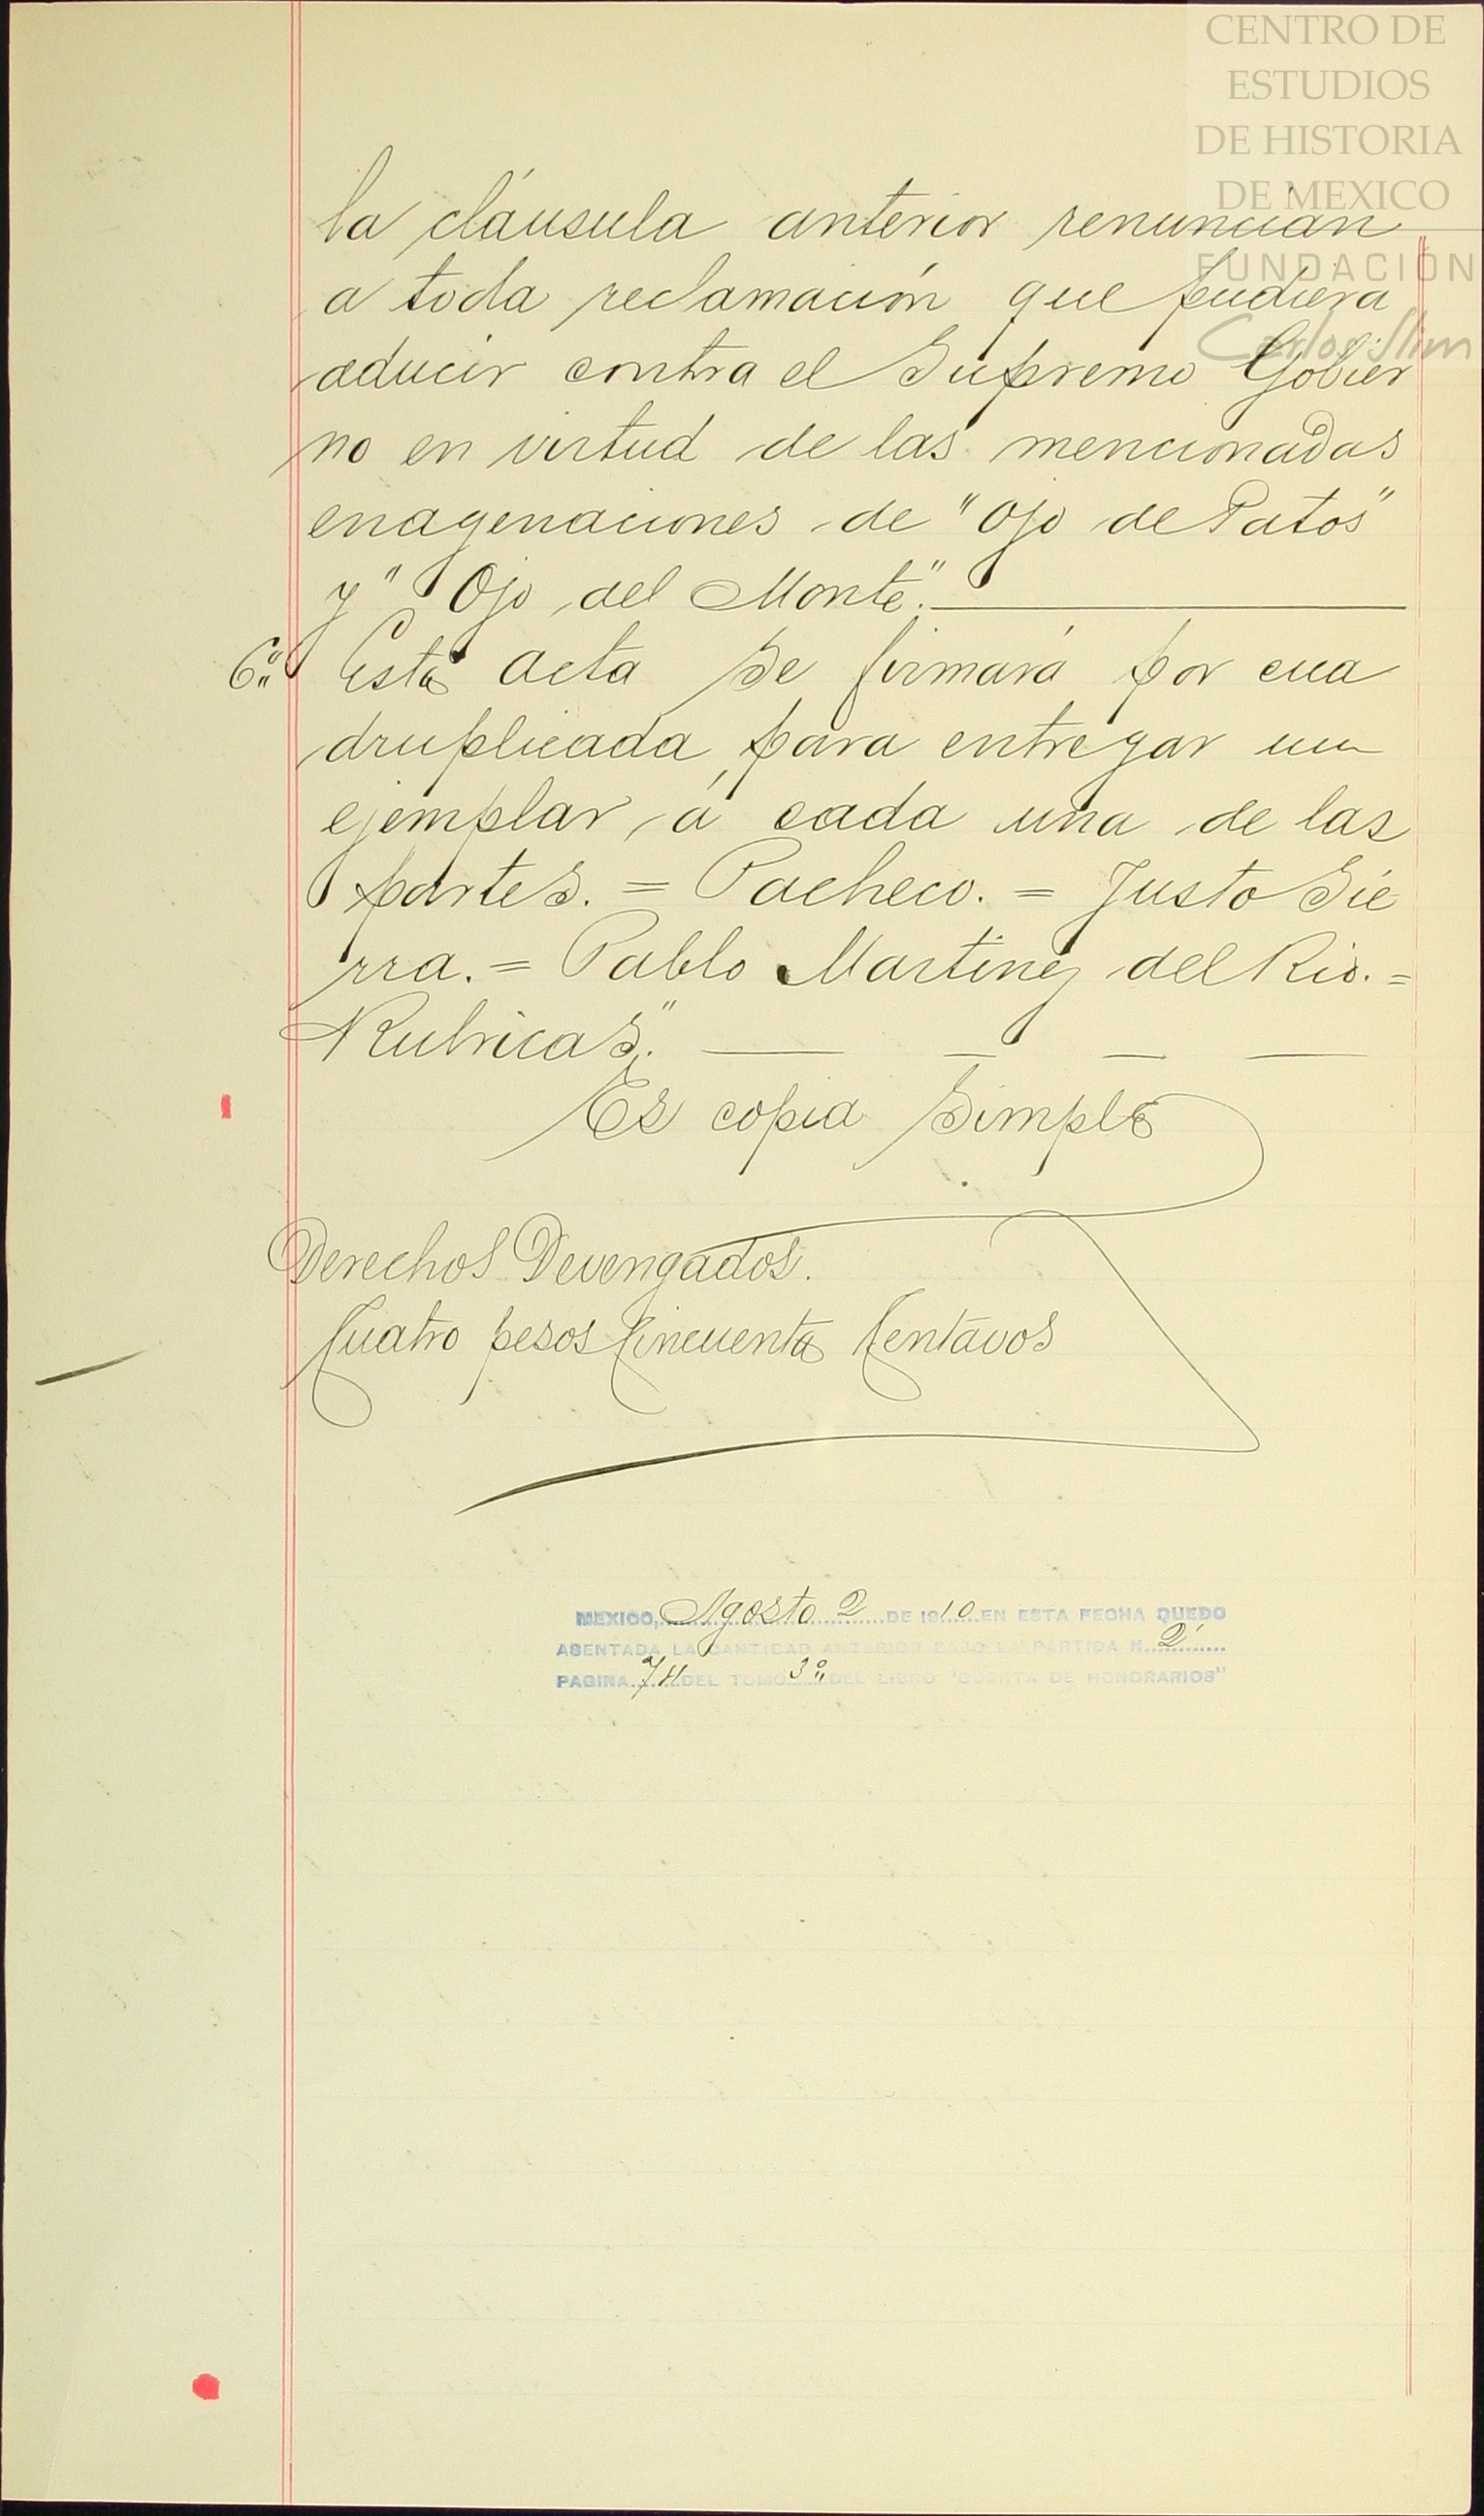 CENTRO DE
ESTUDIOS
DE HISTORIA
DE MEXICO
FUNDACIÓN
Carlos Slim
la cláusula anterior renuncian
a toda reclamación que pudiera
aducir contra el Supremo Gobier
no en virtud de las mencionadas
enagenaciones de "Ojo de Patos"
y "Ojo del Monte".
6ª Esta acta se firmará por cua
druplicada, para entregar un
ejemplar á cada una de las
partes. = Pacheco. = Justo Sie
rra. = Pablo Martinez del Rio. =
Rubricas".
Es copia simple
Derechos Devengados.
Cuatro pesos Cincuenta Centavos
MEXICO, Agosto 2 DE 1910 EN ESTA FECHA QUEDO
ASENTADA LA CANTIDAD ANTERIOR BAJO LA PARTIDA N. 2
PAGINA 74 DEL TOMO 3º DEL LIBRO "CUENTA DE HONORARIOS"